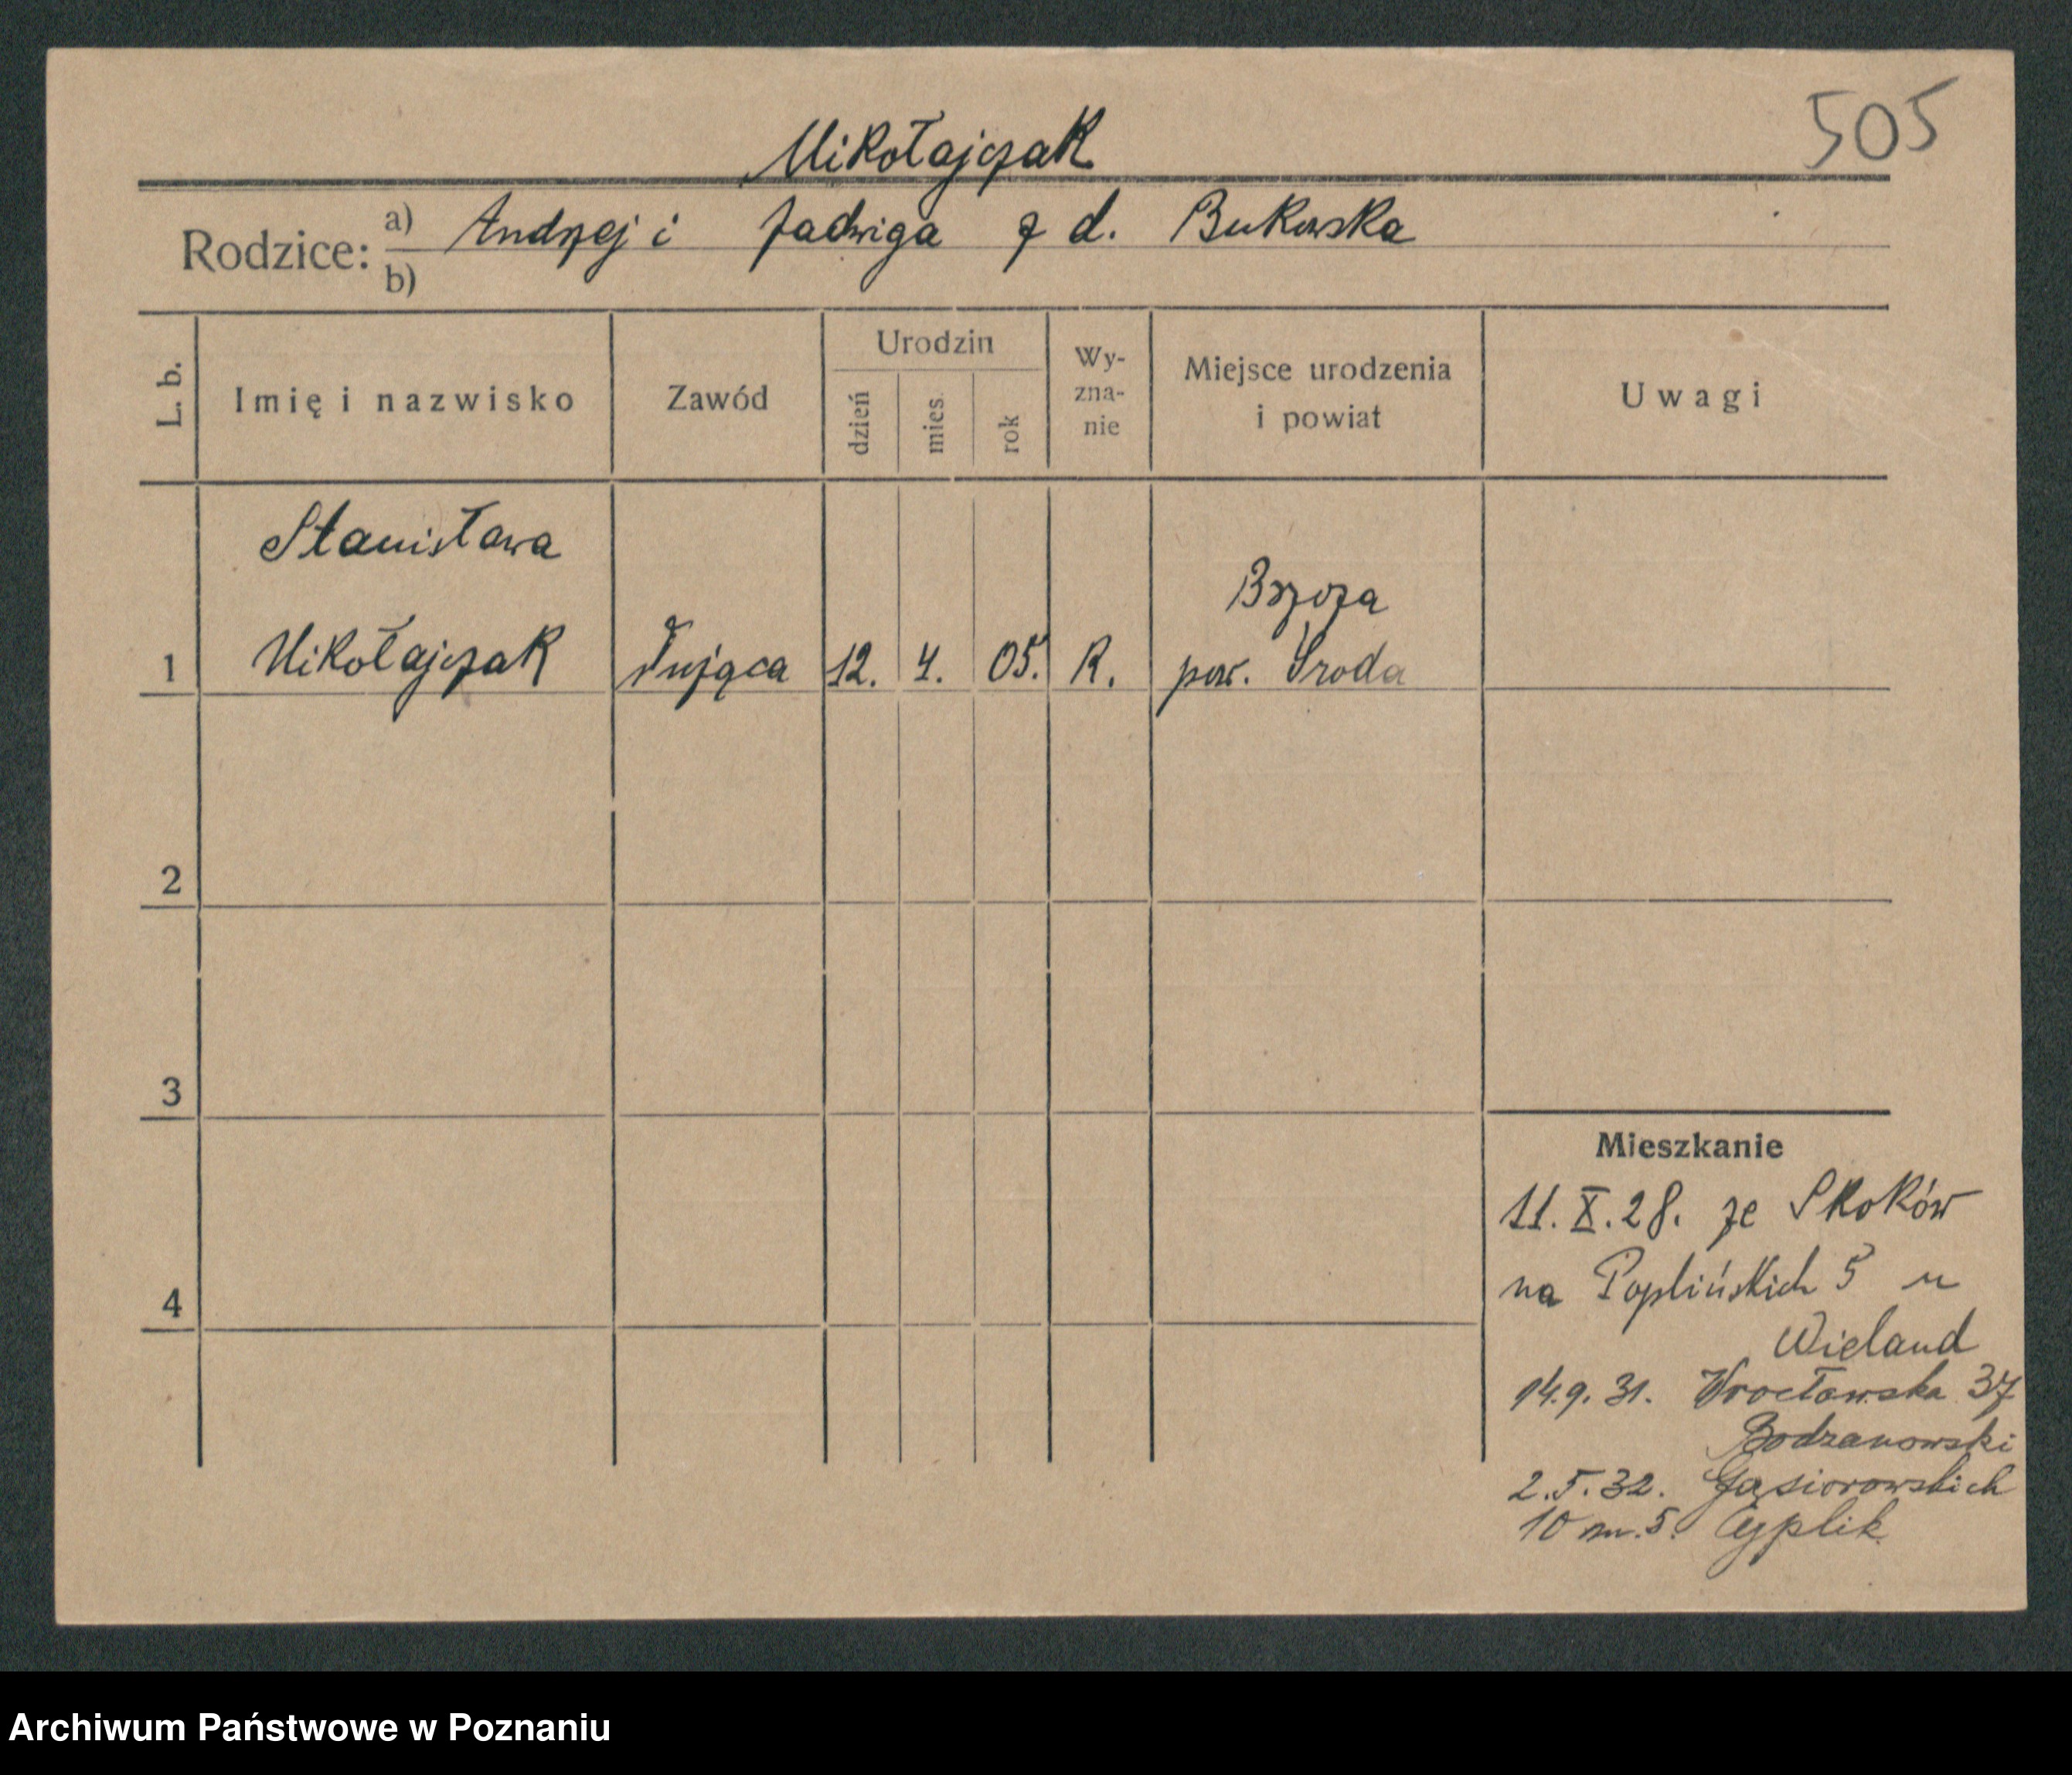 505
Mikołajczak
Rodzice: a) Andrzej i Jadwiga z d. Bukowska
b)
L. b. Imię i nazwisko Zawód Urodzin dzień mies. rok Wy-zna-nie Miejsce urodzenia i powiat Uwagi
Stanisława
Brzoza
1 Mikołajczak służąca 12. 4. 05. R. pow. Środa
2
3
Mieszkanie
11.X.28. ze Skoków
na Poplińskich 5 u
4
Wieland
14.9.31. Wrocławska 37
Bodzanowski
2.5.32. Gąsiorowskich
10 m. 5. Cyplik
Archiwum Państwowe w Poznaniu